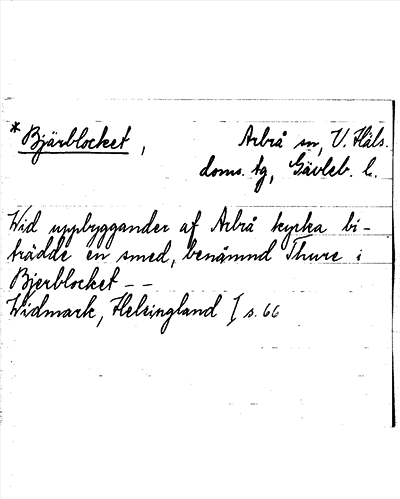 * Bjärblocket,
Arbrå sn, V. Häls.
doms. tg, Gävleb. l.
Wid uppbyggandet af Arbrå kyrka bi-
trädde en smed, benämnd Thure i
Bjerblocket - -
Widmark, Helsingland I s. 66